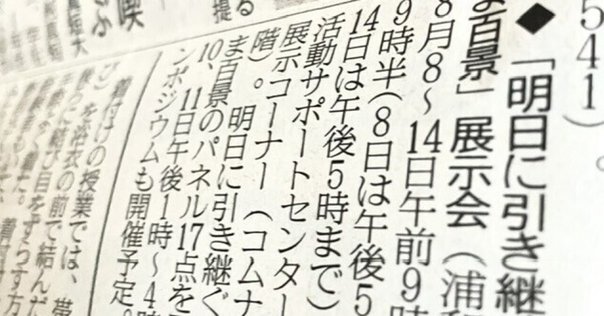 541）。
◆「明日に引き継
ま百景」展示会（浦
8月8〜14日午前9時
9時半（8日は午後5
14日は午後5時まで）
活動サポートセンター
展示コーナー（コムナ
階）。明日に引き継ぐ
ま百景のパネル17点を
10、11日午後1時〜4時
ンポジウムも開催予定。
る
提
喫
着付けの授業では、帯
を浴衣の前で結んだ